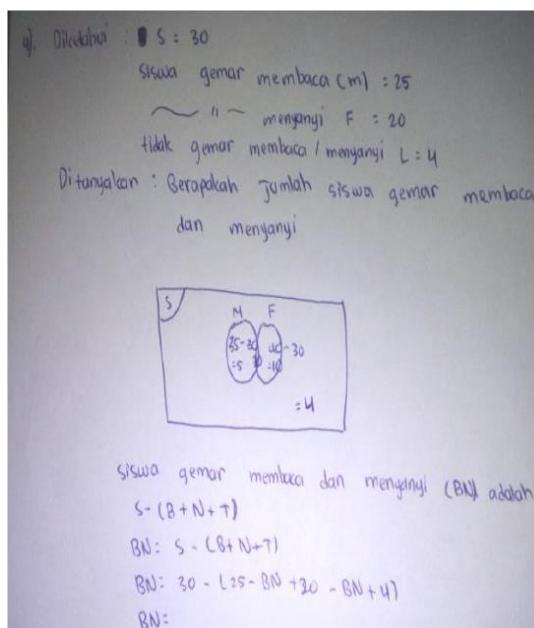 4). Diketahui : S = 30
siswa gemar membaca (m) = 25
~ " ~ menyanyi F = 20
tidak gemar membaca / menyanyi L = 4
Ditanyakan : Berapakah jumlah siswa gemar membaca
dan menyanyi
S
M F
35-30 40-30
=5 =10
=4
siswa gemar membaca dan menyanyi (BN) adalah
S-(B+N+T)
BN: S - (B+N+T)
BN: 30 - (25 - BN + 20 - BN + 4)
BN: